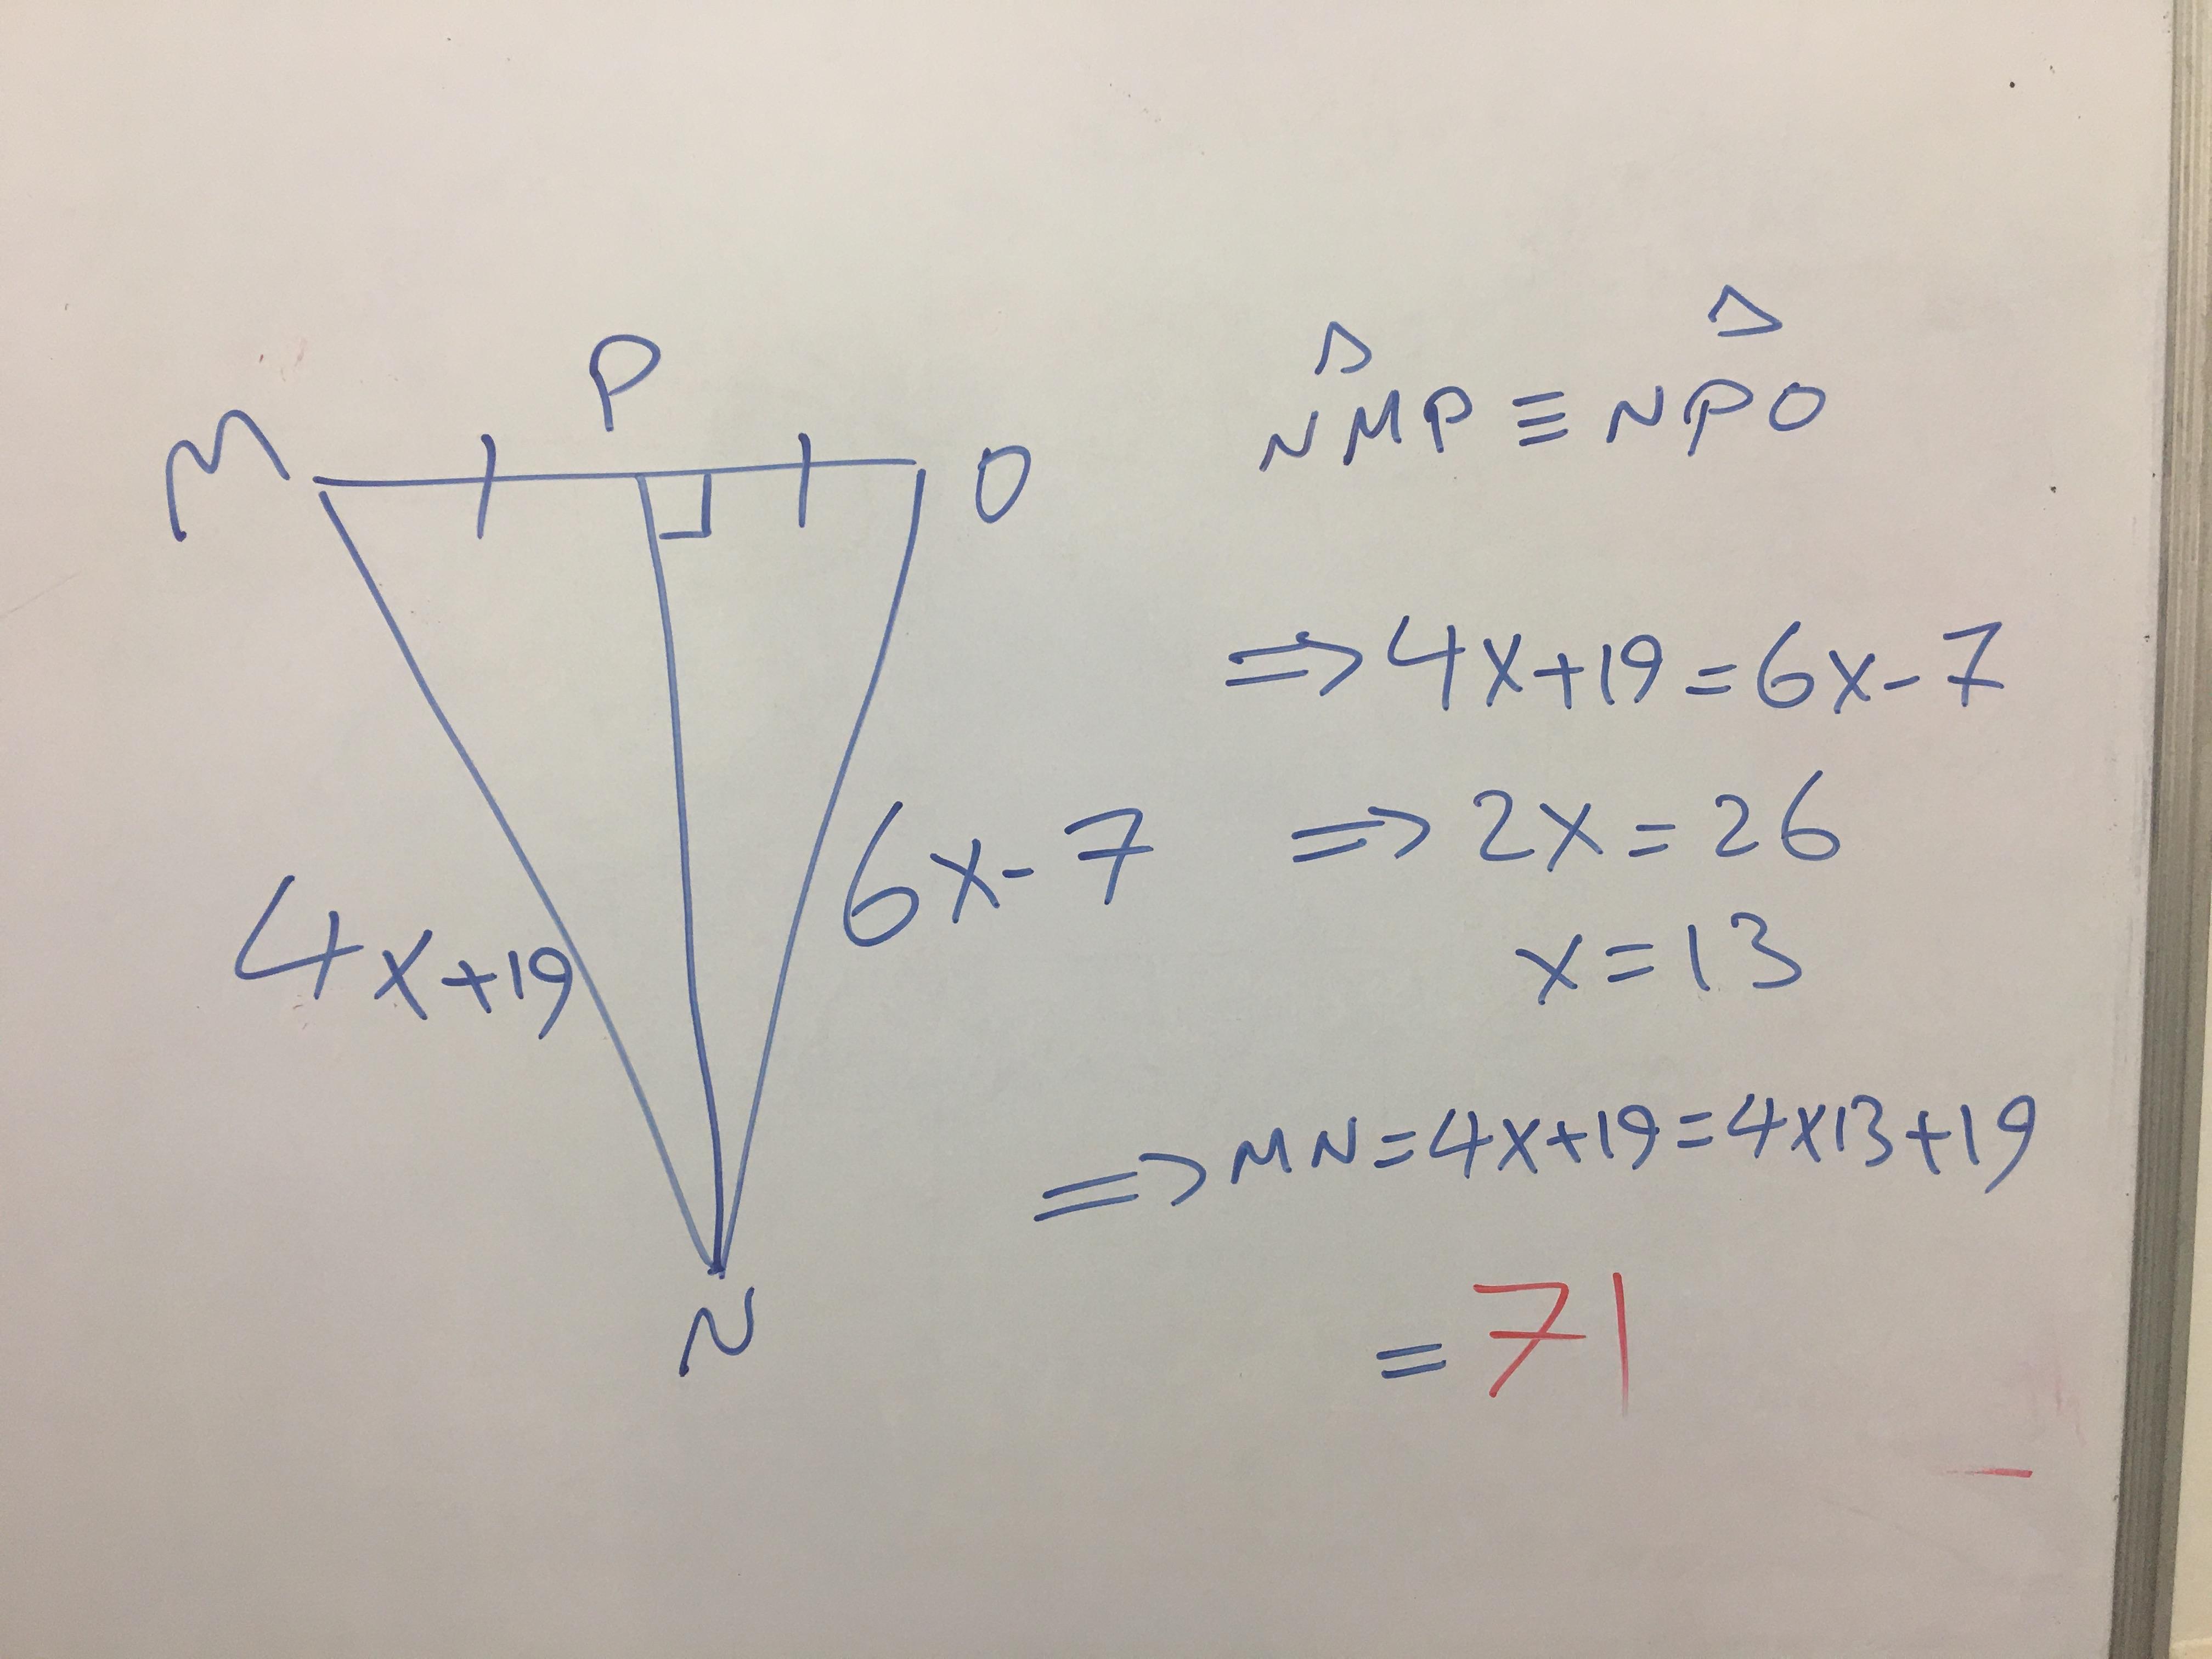 P
M
O
4x+19
6x-7
N
NMP ≡ NPO
⇒ 4x+19=6x-7
⇒ 2x=26
x=13
⇒ MN=4x+19=4x13+19
=71